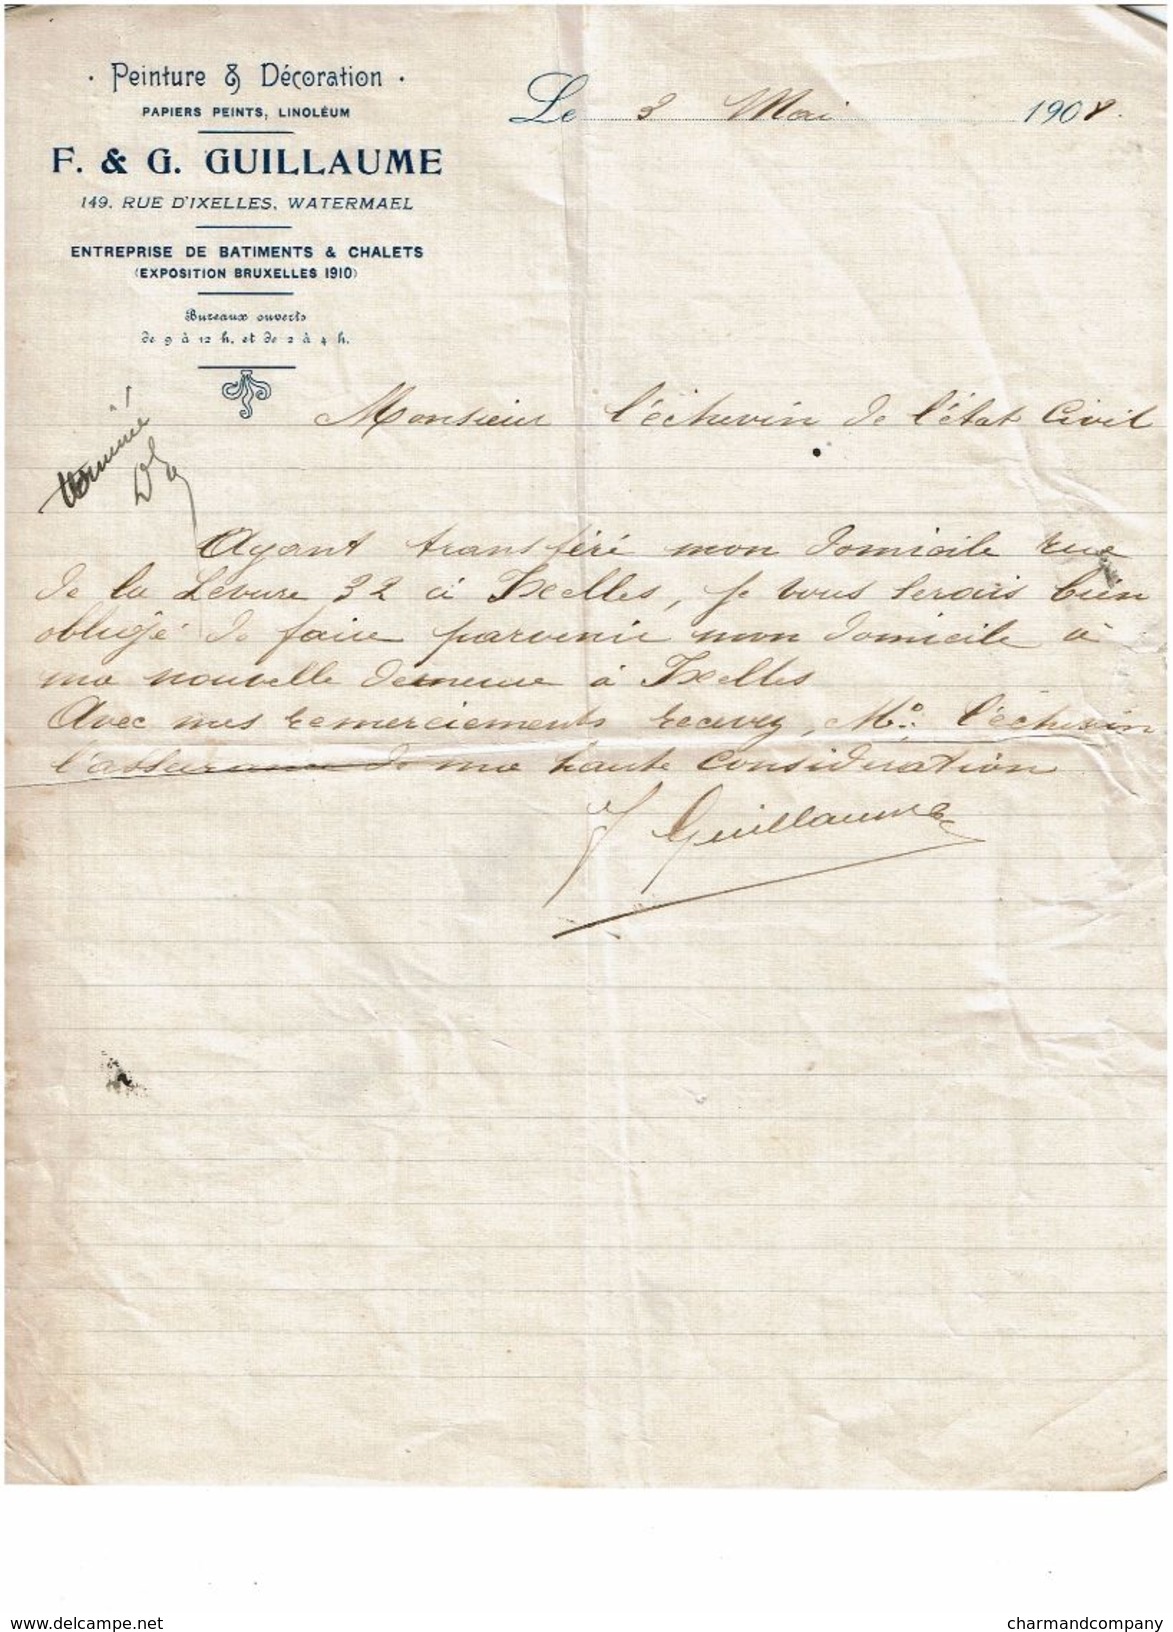 · Peinture & Décoration ·
PAPIERS PEINTS, LINOLÉUM
F. & G. GUILLAUME
149. RUE D'IXELLES, WATERMAEL
ENTREPRISE DE BATIMENTS & CHALETS
(EXPOSITION BRUXELLES 1910)
Bureaux ouverts
de 9 à 12 h. et de 2 à 4 h.
Le 3 Mai 1908.
Monsieur l'échevin de l'état Civil
Ayant transféré mon domicile rue
de la Levure 32 à Ixelles, je vous serais bien
obligé de faire parvenir mon domicile à
ma nouvelle demeure à Ixelles
Avec mes remerciements recevez, Mr. l'échevin
l'assurance de ma haute consideration
J Guillaume
www.delcampe.net
charmandcompany